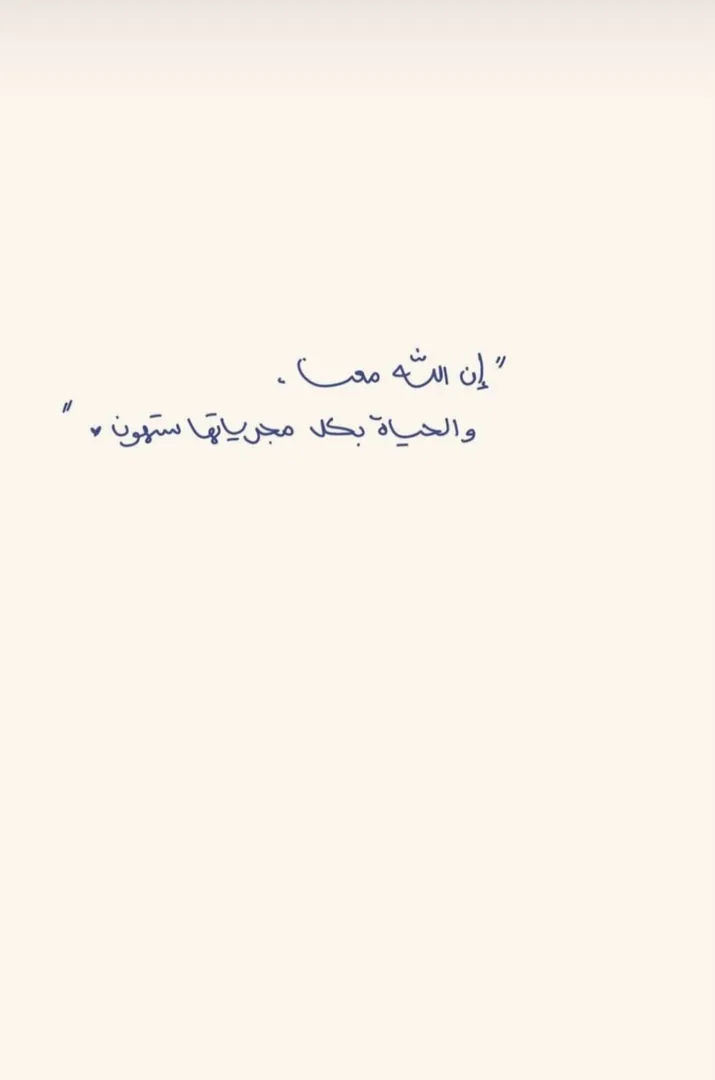 "إن الله معنا .
والحياة بكل مجرياتها ستهون ♥"